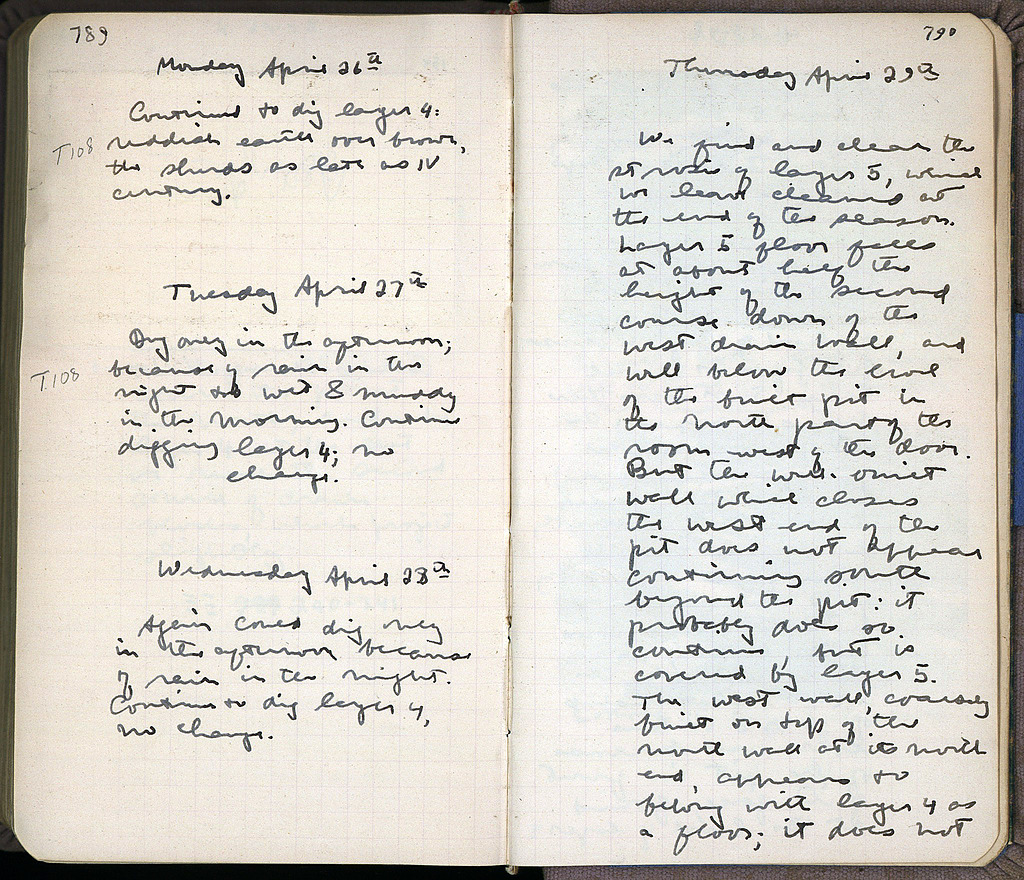 789
Monday April 26th
Continued to dig layer 4:
T108
reddish earth over brown,
the sherds as late as IV
century.
Tuesday April 27th
Dug only in the afternoon;
T108
because of rain in the
night too wet & muddy
in the morning. Continue
digging layer 4; no
change.
Wednesday April 28th
Again could dig only
in the afternoon because
of rain in the night.
Continue to dig layer 4,
no change.
790
Thursday April 29th
We find and clean the
strosis of layer 5, which
we leave cleaned at
the end of the season.
Layer 5 floor falls
at about half the
height of the second
course down of the
west drain wall, and
well below the level
of the built pit in
the north part of the
room west of the door.
But the well built
wall which closes
the west end of the
pit does not appear
continuing south
beyond the pit: it
probably does so
continue, but is
covered by layer 5.
The west wall, coarsely
built on top of the
north wall at its north
end, appears to
belong with layer 4 as
a floor; it does not